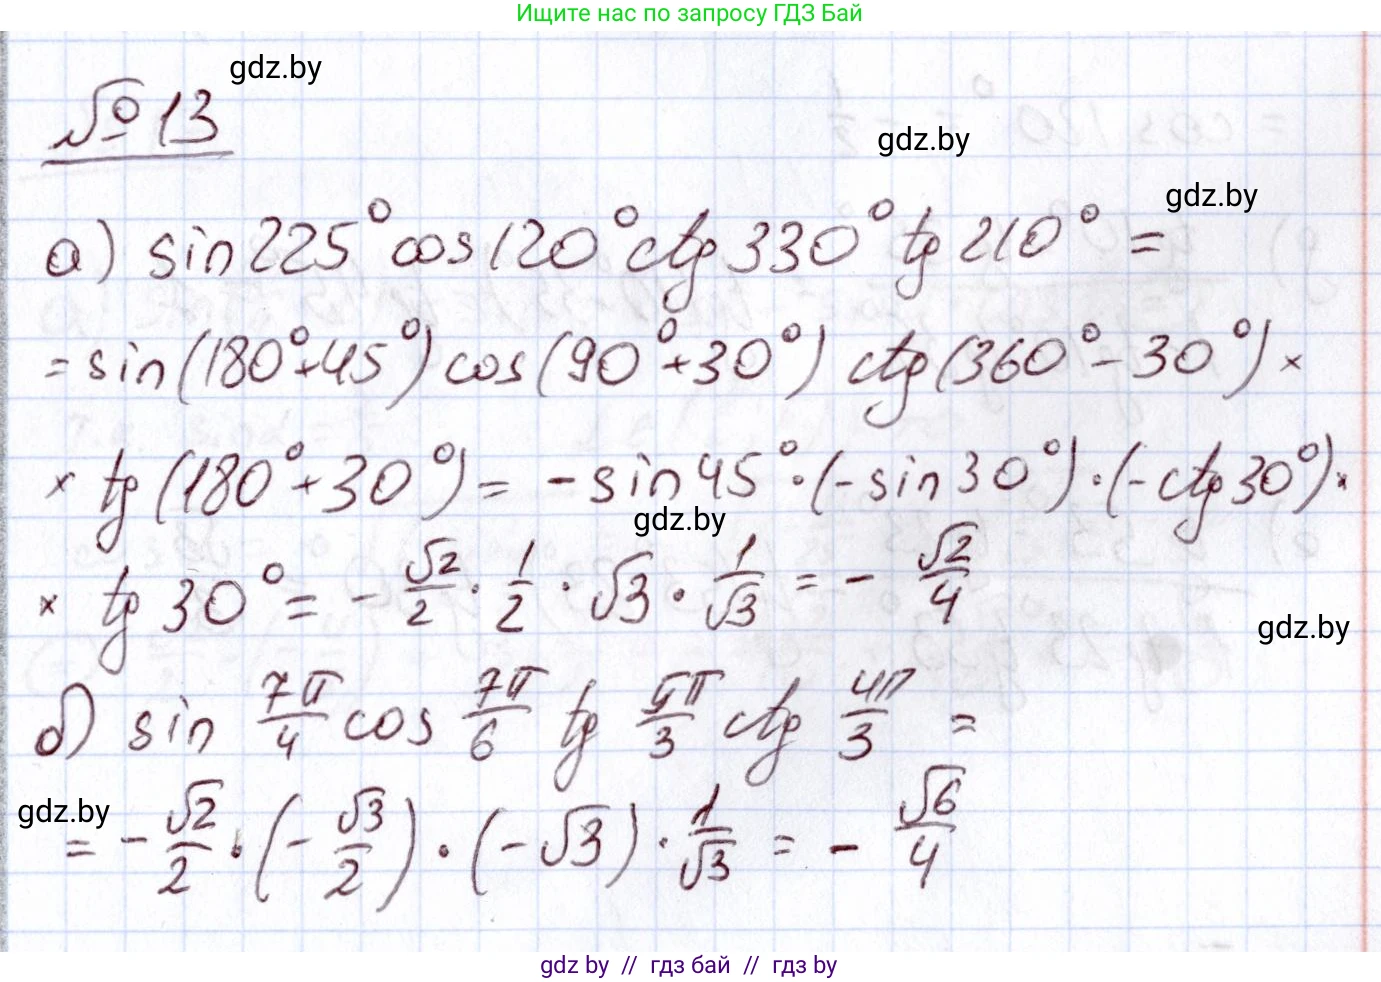 Ищите нас по запросу ГДЗ Бай
gdz.by
№ 13
gdz.by
gdz.by
а) sin 225° cos 120° ctg 330° tg 210° =
= sin (180° + 45°) cos (90° + 30°) ctg (360° - 30°) ×
× tg (180° + 30°) = - sin 45° · (- sin 30°) · (- ctg 30°) ×
gdz.by
× tg 30° = - √2/2 · 1/2 · √3 · 1/√3 = - √2/4
gdz.by
б) sin 7π/4 cos 7π/6 tg 5π/3 ctg 4π/3 =
gdz.by
= - √2/2 · (- √3/2) · (- √3) · 1/√3 = - √6/4
gdz by // гдз бай // гдз by